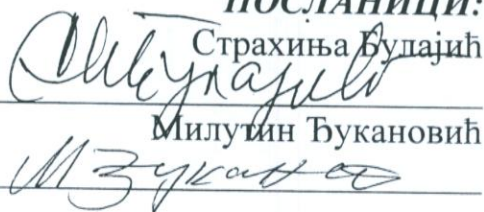 ПОСЛАНИЦИ:
Страхиња Булајић
Милутин Ђукановић